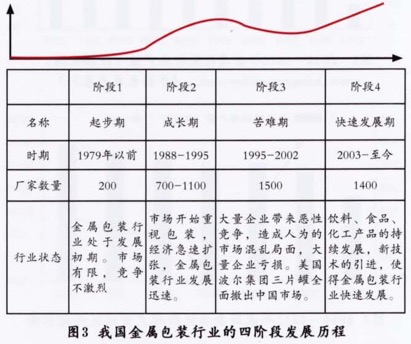 阶段1 阶段2 阶段3 阶段4
名称 起步期 成长期 苦难期 快速发展期
时期 1979年以前 1988-1995 1995-2002 2003-至今
厂家数量 200 700-1100 1500 1400
行业状态
金属包装行
业处于发展
初期。市场
有限，竞争
不激烈
市场开始重
视包装，
经济急速扩
张，金属包
装行业发展
迅速。
大量企业带来恶性
竞争，造成人为的
市场混乱局面，大
量企业亏损。美国
波尔集团三片罐全
面撤出中国市场。
饮料、食品、
化工产品的持
续发展，新技
术的引进，使
得金属包装行
业快速发展。
图3 我国金属包装行业的四阶段发展历程